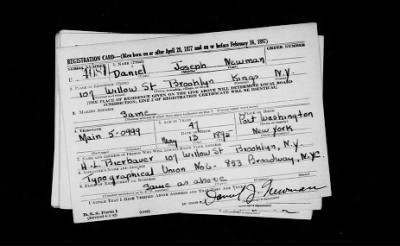 REGISTRATION CARD—(Men born on or after April 28, 1877 and on or before February 16, 1897)
SERIAL NUMBER 1. NAME (Print) ORDER NUMBER
Daniel Joseph Newman
2. PLACE OF RESIDENCE (Print)
107 Willow St Brooklyn Kings N.Y.
(THE PLACE OF RESIDENCE GIVEN ON THE LINE ABOVE WILL DETERMINE LOCAL BOARD
JURISDICTION; LINE 2 OF REGISTRATION CERTIFICATE WILL BE IDENTICAL)
3. MAILING ADDRESS
Same
4. TELEPHONE
Main 5-0999
47
Port Washington
May 13 1895
New York
7. NAME AND ADDRESS OF PERSON WHO WILL ALWAYS KNOW YOUR ADDRESS
H.L. Bierbauer 107 Willow St. Brooklyn, N.Y.
8. EMPLOYER'S NAME AND ADDRESS
Typographical Union No.6- 953 Broadway, NYC
9. PLACE OF EMPLOYMENT OR BUSINESS
Same as above
I AFFIRM THAT I HAVE VERIFIED ABOVE ANSWERS AND THAT THEY ARE TRUE.
D.S.S. Form 1
Daniel J. Newman